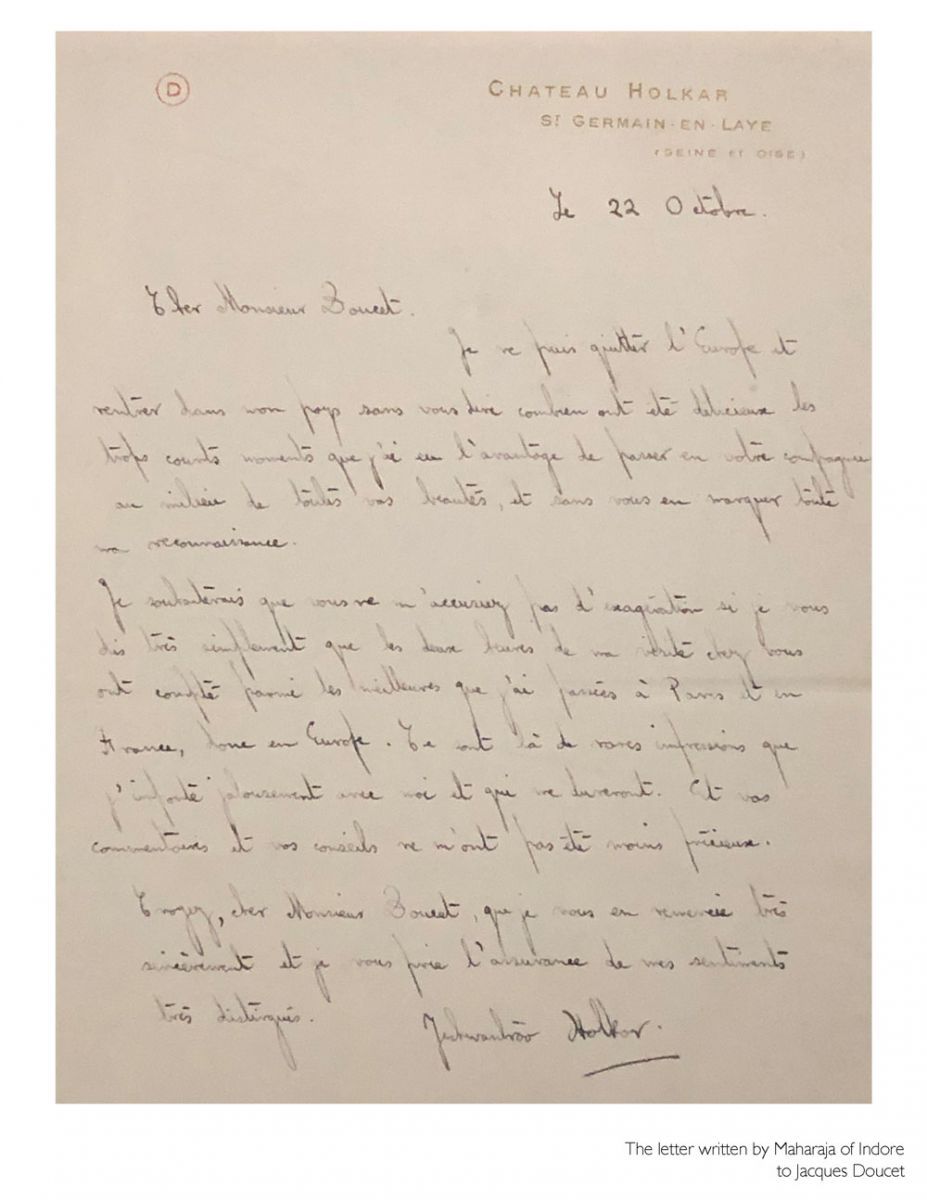 D
CHATEAU HOLKAR
ST GERMAIN-EN-LAYE
(SEINE ET OISE)
Le 22 Octobre.
Cher Monsieur Doucet.
Je ne puis quitter l'Europe et
rentrer dans mon pays sans vous dire combien ont été délicieux les
trops courts moments que j'ai eu l'avantage de passer en votre compagnie
au milieu de toutes vos beautés, et sans vous en marquer toute
ma reconnaissance.
Je souhaiterais que vous ne m'accusiez pas d'exagération si je vous
dis très simplement que les deux heures de ma visite chez vous
ont compté parmi les meilleures que j'ai passées à Paris et en
France, donc en Europe. Ce sont là de rares impressions que
j'importe jalousement avec moi et qui me dureront. Et vos
commentaires et vos conseils ne m'ont pas été moins précieux.
Croyez, cher Monsieur Doucet, que je vous en remercie très
sincèrement et je vous prie l'assurance de mes sentiments
très distingués.
Yeshwantrao Holkar.
The letter written by Maharaja of Indore
to Jacques Doucet